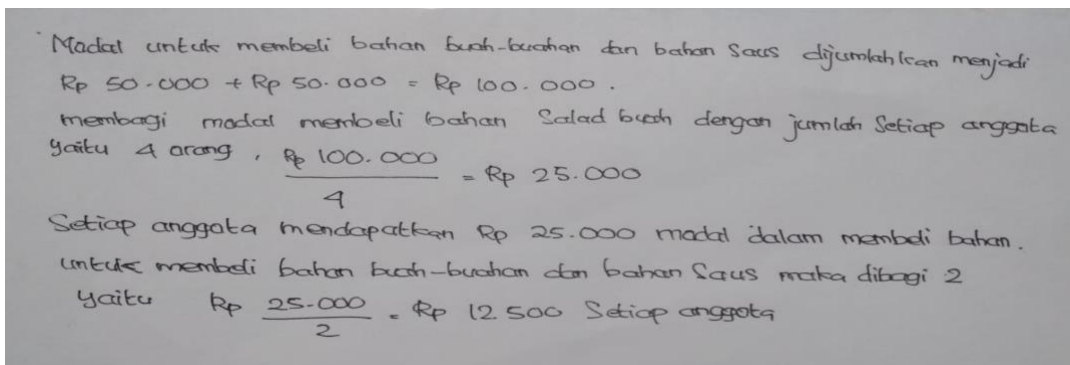 Modal untuk membeli bahan buah-buahan dan bahan saus dijumlahkan menjadi
Rp 50.000 + Rp 50.000 = Rp 100.000.
membagi modal membeli bahan Salad buah dengan jumlah Setiap anggota
yaitu 4 orang, Rp 100.000 / 4 = Rp 25.000
Setiap anggota mendapatkan Rp 25.000 modal dalam membeli bahan.
untuk membeli bahan buah-buahan dan bahan Saus maka dibagi 2
yaitu Rp 25.000 / 2 = Rp 12.500 Setiap anggota